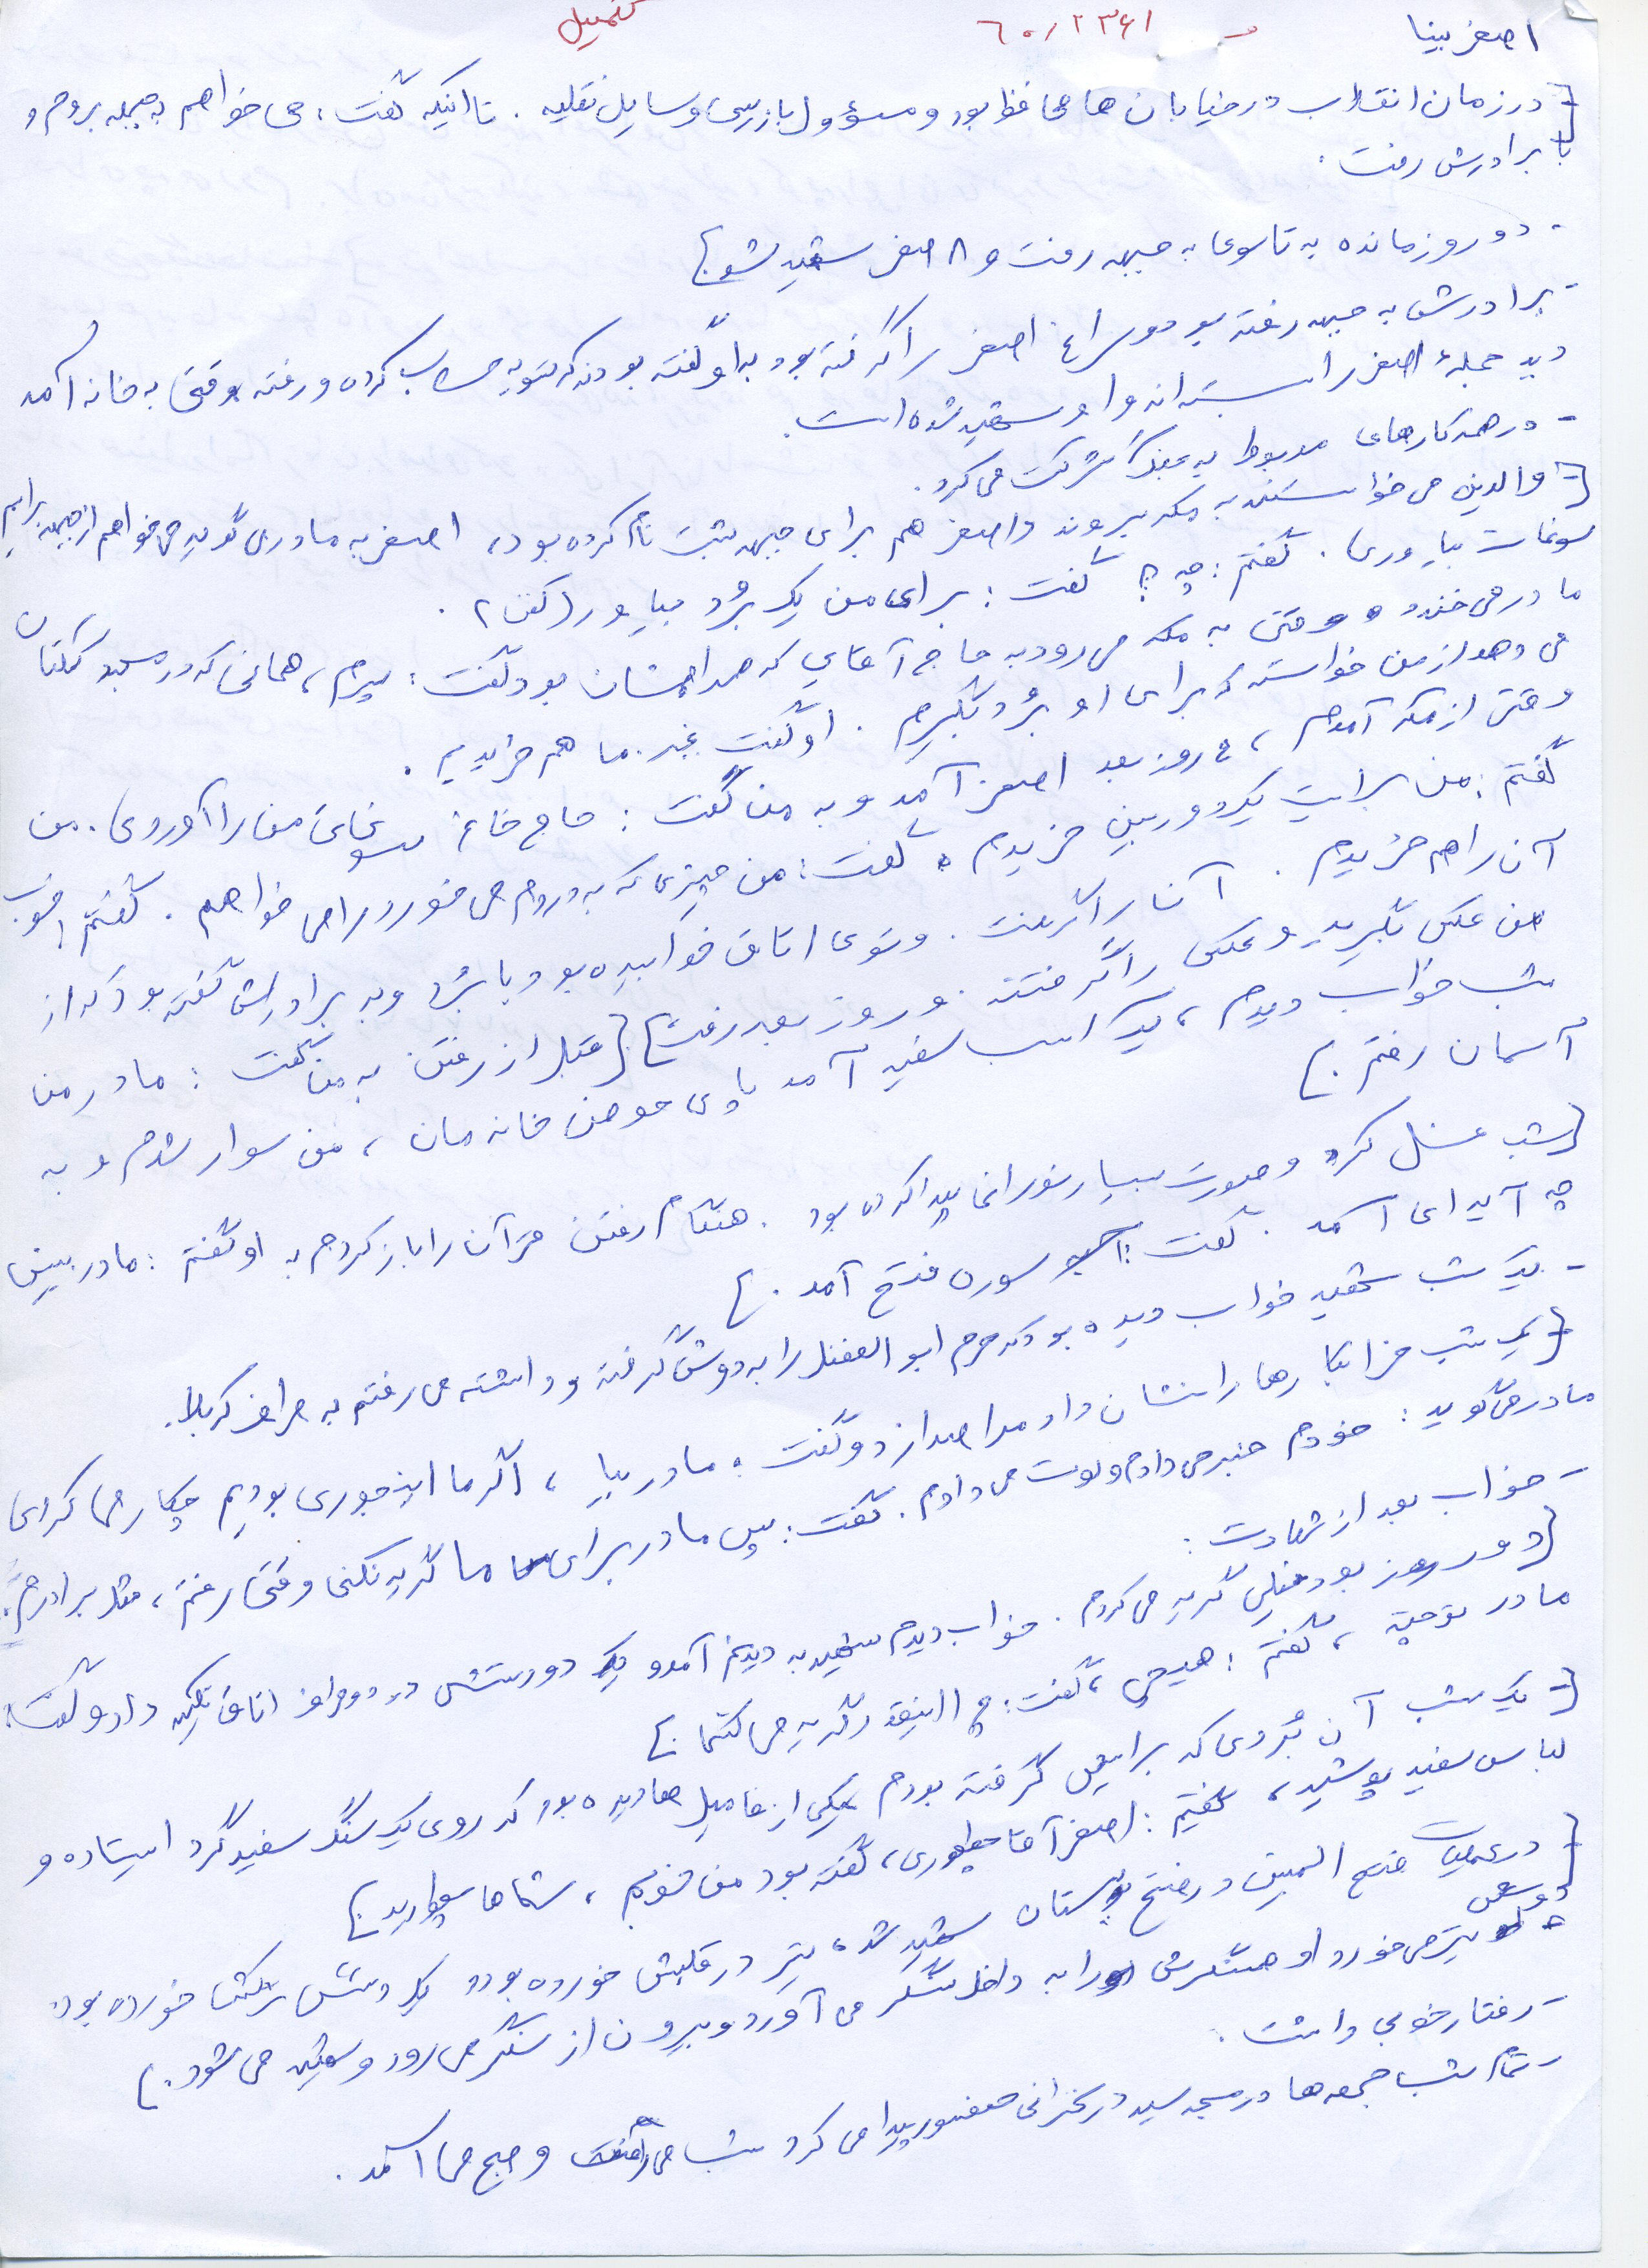 اصغر بینا
۶۰/۲۳۶۱
تکمیل
در زمان انقلاب در خیابان ها محافظ بود و مسؤول بازرسی وسایل نقلیه. تا اینکه گفت: می خواهم به جبهه بروم و
با برادرش رفت.
- دو روز مانده به تاسوعا به جبهه رفت و ۸ صفر شهید شد.]
- برادرش به جبهه رفته بود و سراغ اصغر را گرفته بود به او گفته بودند که تسویه حساب کرده و رفته وقتی به خانه آمد
دید حجلهٔ اصغر را بسته اند و او شهید شده است.
- در همه کارهای مربوط به جنگ شرکت می کرد.
[- والدین می خواستند به مکه بروند و اصغر هم برای جبهه ثبت نام کرده بود، اصغر به مادر می گوید می خواهم از جبهه برایم
سوغات بیاوری. گفتم: چه؟ گفت: برای من یک بُرد بیاور (کفن).
مادر می خندد و وقتی به مکه می رود به حاج آقایی که همراهشان بود گفت: پسرم، همانی که در مسجد نگهبانی
می دهد از من خواسته که برای او بُرد بگیرم. او گفت بخر. ما هم خریدیم.
وقتی از مکه آمدم، ۶ روز بعد اصغر آمد و به من گفت: حاج خانم سوغاتی من را آوردی. من
گفتم: من برایت یک دوربین خریدم. گفت: من چیزی که به دردم می خورد را می خواهم. گفتم، خوب
آن را هم خریدم. آن را گرفت. و توی اتاق خوابیده بود و با بُرد و به برادرش گفته بود که از
من عکس بگیرید و عکس را گرفتند. و روز بعد رفت] [قبل از رفتن به من گفت: مادر من
شب خواب دیدم، یک اسب سفید آمد پای حوض خانه مان، من سوار شدم و به
آسمان رفتم.]
[شب غسل کرد و صورت بسیار نورانی پیدا کرده بود. هنگام رفتن قرآن را باز کردم به او گفتم: مادر ببین
چه آیه ای آمد. گفت: سوره فتح آمد.]
- یک شب شهید خواب دیده بود که حرم ابوالفضل را به دوش گرفته و داشته می رفتم به طرف کربلا.
[یک شب خرابکارها را نشان داد مرا صدا زد و گفت: مادر بیا، اگر ما این جوری بودیم چکار می کردی
مادر می گوید: خودم خبر می دادم و لوت می دادم. گفت: پس مادر برای ما گریه نکنی وقتی رفتم، مثل برادرم.]
- خواب بعد از شهادت:
[دو روز بود خیلی گریه می کردم. خواب دیدم شهید به دیدنم آمد و دو دستش در دو طرف اتاق تکیه داد و گفت:
مادر تو چته، گفتم: هیچی، گفت: چرا اینقدر گریه می کنی.]
[- یک شب آن بُردی که برایش گرفته بودم یکی از فامیل ها دیده بود که روی یک سنگ سفید گرد ایستاده و
لباس سفید پوشید، گفتیم: اصغر آقا چطوری، گفته بود من خوبم، شماها چطورید.]
[در عملیات فتح المبین در فتح بستان شهید شد، تیر در قلبش خورده بود یک دستش ترکش خورده بود
دوستش تیر می خورد او همسنگرش را به داخل سنگر می آورد و بیرون از سنگر می رود و شهید می شود.]
- رفتار خوبی داشت.
- تمام شب جمعه ها در مسجد سید در سخنرانی حضور پیدا می کرد شب می رفت و صبح می آمد.